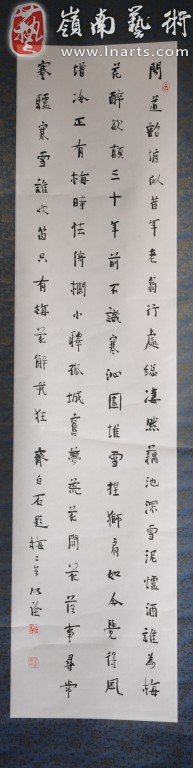 嶺南藝術
www.lnarts.com
問道韶塘似昔年老翁行處總凄然藕池深雪泥爐酒誰為梅
花醉欲顛三十年前不識寒沁園堆雪捏獅看如今覺得風
增冷正有梅時怯倚欄小驛孤城舊夢荒花開花落事尋常
蹇驢寒雪誰吹笛只有梅花解我狂 齊白石題梅三首